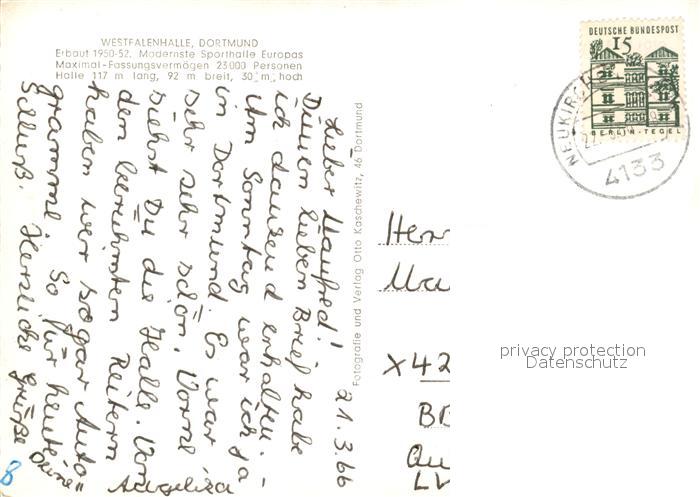 WESTFALENHALLE, DORTMUND
Erbaut 1950-52. Modernste Sporthalle Europas
Maximal-Fassungsvermögen 23000 Personen
Halle 117 m lang, 92 m breit, 30 m hoch
21.3.66
Lieber Manfred!
Deinen lieben Brief habe
ich dankend erhalten.
Am Sonntag war ich ja
in Dortmund. Es war
sehr sehr schön. Vorne
siehst Du die Halle. Von
den berühmten Reitern
haben wir sogar Auto-
gramme. So für heute
Schluß. Herzliche Grüße Deine
Angelika
8
Fotografie und Verlag Otto Kaschewitz, 46 Dortmund
DEUTSCHE BUNDESPOST
15
BERLIN-TEGEL
NEUKIRCH
22.
4133
Herr
Ma
X42
privacy protection
Datenschutz